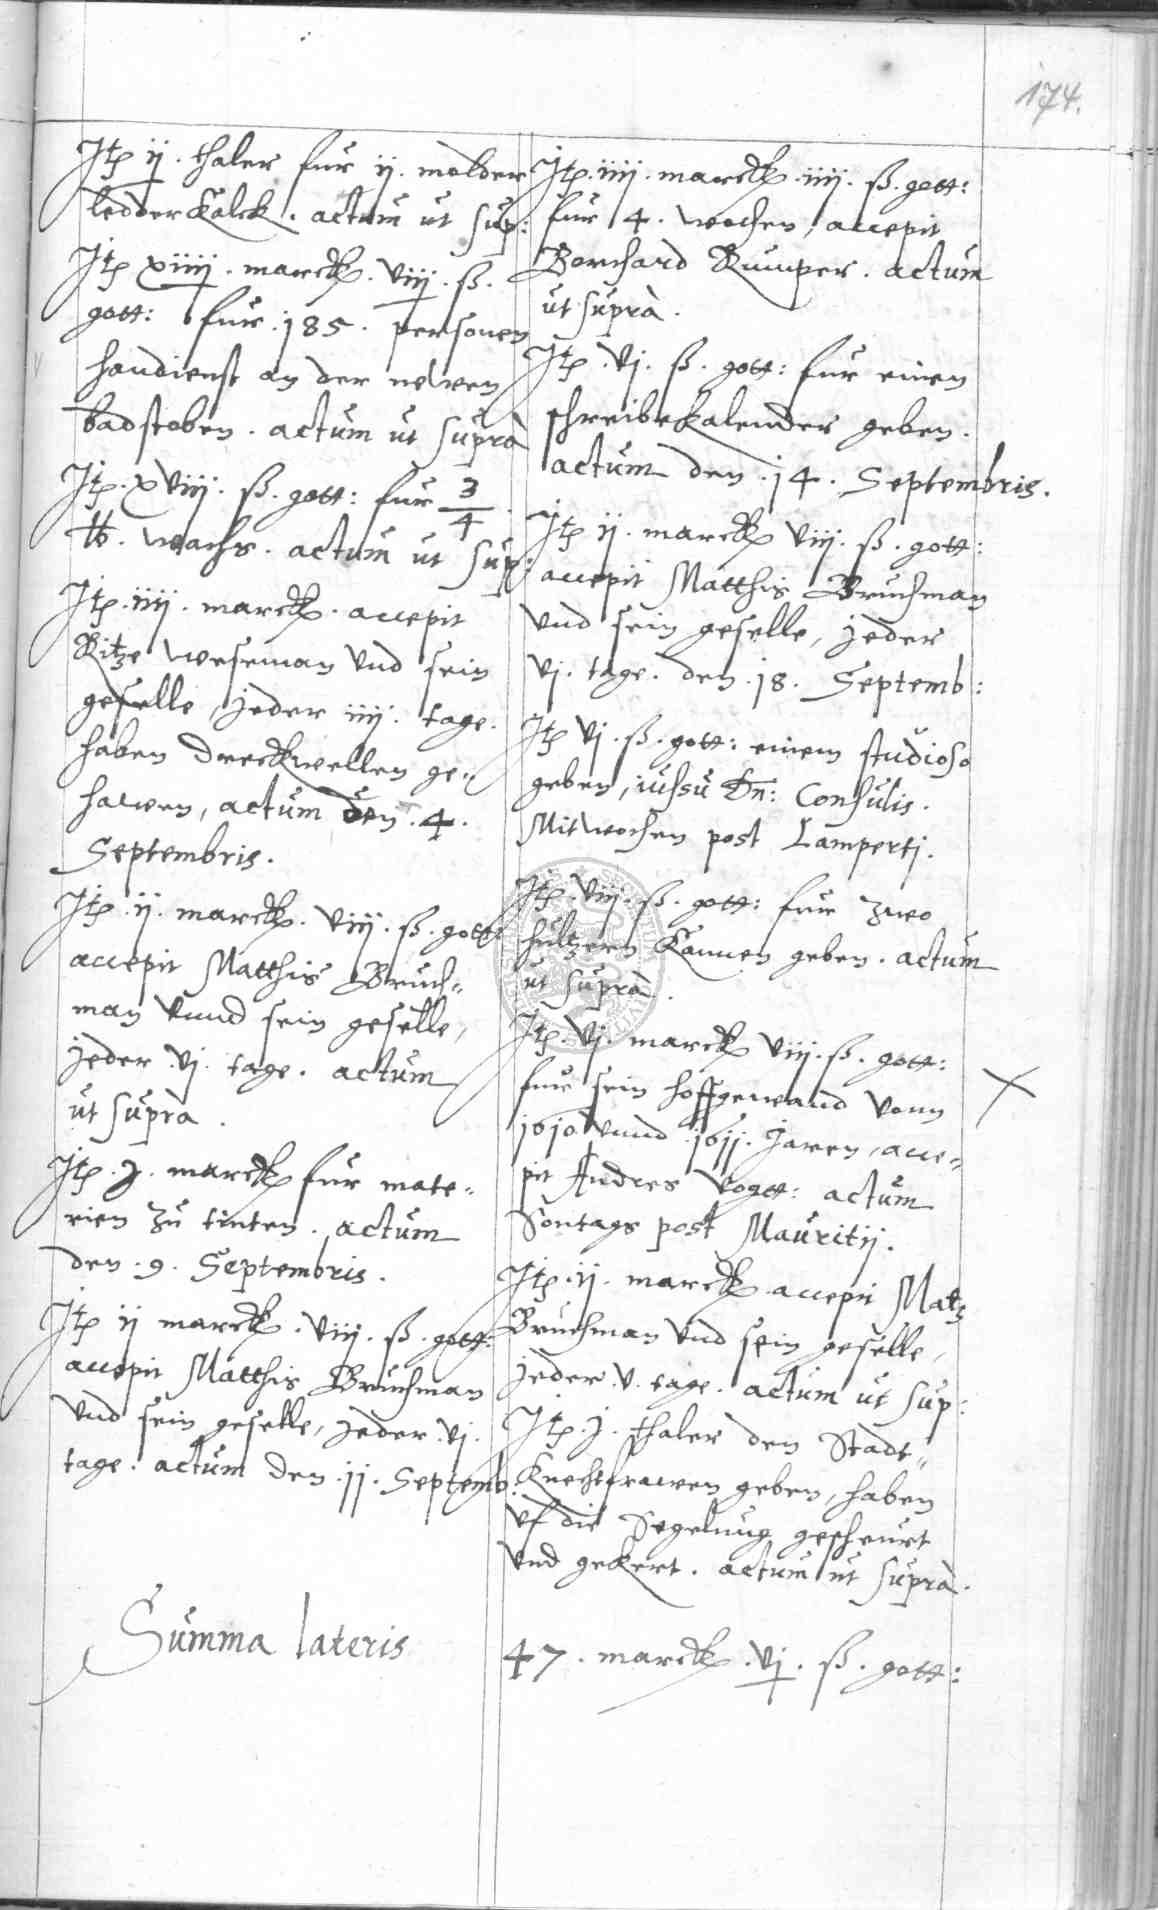 174.
Jtem ij. thaler fur ij. molder
ledder Kalck. actum ut sup:
Jtem xiiij. marck. viij. ß.
gott: fur .185. personen
handienst an der newen
badstoben. actum ut suprà
Jtem. xviij. ß. gott: fur 3/4.
℔. wachs. actum ut sup:
Jtem. iiij. marck. accepit
Ritze Weseman vnd sein
geselle, jeder iiij. tage.
haben dreckwellen ge„
hawen, actum den .4.
Septembris.
Jtem. ij. marck. viij. ß. gott:
accepit Matthis Bruch„
man vnnd sein geselle,
jeder vj. tage. actum
ut suprà.
Jtem. j. marck fur mate„
rien zu tinten. actum
den .9. Septembris.
Jtem ij marck. viij. ß. gott:
accepit Matthis Bruchman
vnd sein geselle, jeder vj.
tage. actum den .jj. Septemb:
Summa lateris
Jtem. iiij. marck. iiij. ß. gott:
fur 4. wochen, accepit
Bernhard Rumper. actum
ut suprà.
Jtem. vj. ß. gott: fur einen
schreibekalender geben.
actum den .j4. Septembris.
Jtem ij. marck viij. ß. gott:
accepit Matthis Bruchman
vnd sein geselle, jeder
vj. tage. den .j8. Septemb:
Jtem vj. ß. gott: einem studioso
geben, iussu Dn: Consulis.
Mitwochen post Lamperti.
Jtem. viij. ß. gott: fur zwo
hultzern Kannen geben. actum
ut suprà.
Jtem. vj. marck viij. ß. gott:
fur sein hoffgewand vonn
j6j0 vnnd j6jj. Jaren, acce„
pit Andres Vogtt: actum
Sontags post Mauritij.
Jtem. ij. marck accepit Matz
Bruchman vnd sein geselle,
jeder v. tage. actum ut sup:
Jtem. j. thaler den Stadt„
Knechtfrawen geben, haben
vf die Segelung gescheurt
vnd gekert. actum ut suprà.
47. marck. vj. ß. gott: